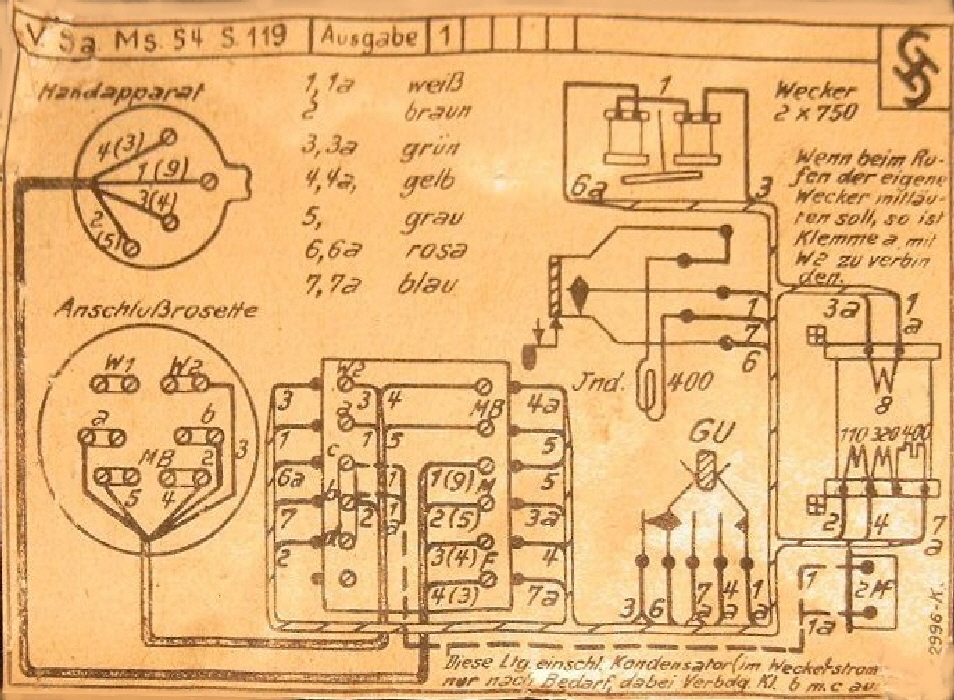 V Sa. Ms. 54 S. 119 Ausgabe 1
Handapparat
4(3)
1(9)
3(4)
2(5)
1,1a weiß
2 braun
3,3a grün
4,4a, gelb
5, grau
6,6a rosa
7,7a blau
1
6a
3
Wecker
2 x 750
Wenn beim Ru-
fen der eigene
Wecker mitläu-
ten soll, so ist
Klemme a mit
W2 zu verbin
den.
Anschlußrosette
W1 W2
a b
MB 2 3
5 4
1
7
6
Jnd. 400
3a 1a
8
110 320 400
2 4 7a
GU
3 6 7a 4a 1a
W2
3 a 4 MB 4a
1 1 5 5
6a c 1 1(9) M 5
7 b 2 1a 2(5) 3a
2 d 3(4) F 4
4(3) 7a
1
2MF
1a
2996-K.
Diese Ltg. einschl. Kondensator (im Weckerstrom
nur nach Bedarf, dabei Verbdg. Kl. b m c au